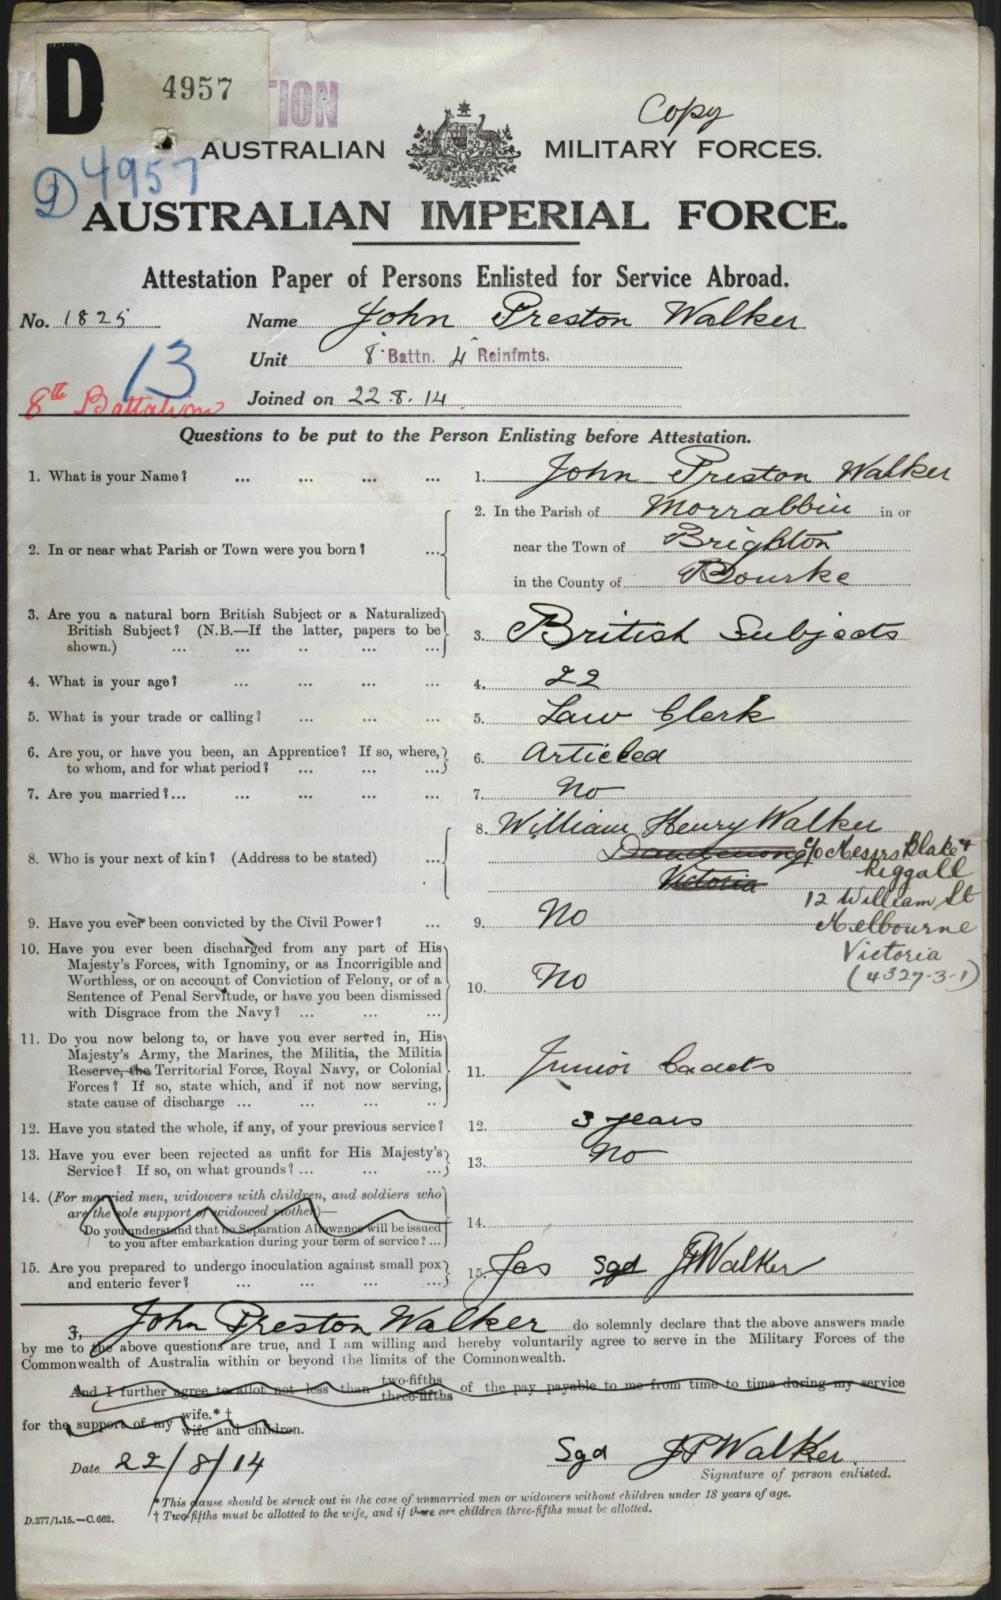 D 4957
TION
Copy
AUSTRALIAN MILITARY FORCES.
D4957
AUSTRALIAN IMPERIAL FORCE.
Attestation Paper of Persons Enlisted for Service Abroad.
No. 1825 Name John Preston Walker
Unit 8 Battn. 4 Reinfmts.
13
8th Battalion Joined on 22.8.14
Questions to be put to the Person Enlisting before Attestation.
1. What is your Name? ... ... ... ... 1. John Preston Walker
2. In the Parish of Morrabbin in or
2. In or near what Parish or Town were you born? ... near the Town of Brighton
in the County of Bourke
3. Are you a natural born British Subject or a Naturalized
British Subject? (N.B.—If the latter, papers to be 3. British Subjects
shown.) ... ... .. ... ...
4. What is your age? ... ... ... ... 4. 22
5. What is your trade or calling? ... ... ... 5. Law Clerk
6. Are you, or have you been, an Apprentice? If so, where, 6. Articled
to whom, and for what period? ... ... ...
7. Are you married?... ... ... ... ... 7. No
8. William Henry Walker
8. Who is your next of kin? (Address to be stated) ... Dandenong c/o Messrs Blake &
Victoria Riggall
12 William St
9. Have you ever been convicted by the Civil Power? ... 9. No Melbourne
Victoria
(4327-3-1)
10. Have you ever been discharged from any part of His
Majesty's Forces, with Ignominy, or as Incorrigible and
Worthless, or on account of Conviction of Felony, or of a 10. No
Sentence of Penal Servitude, or have you been dismissed
with Disgrace from the Navy? ... ... ...
11. Do you now belong to, or have you ever served in, His
Majesty's Army, the Marines, the Militia, the Militia
Reserve, the Territorial Force, Royal Navy, or Colonial 11. Junior Cadets
Forces? If so, state which, and if not now serving,
state cause of discharge ... ... ... ..
12. Have you stated the whole, if any, of your previous service? 12. 3 years
13. Have you ever been rejected as unfit for His Majesty's 13. No
Service? If so, on what grounds? ... ... ...
14. (For married men, widowers with children, and soldiers who
are the sole support of widowed mother)—
Do you understand that no Separation Allowance will be issued 14.
to you after embarkation during your term of service? ...
15. Are you prepared to undergo inoculation against small pox 15. Yes Sgd JPWalker
and enteric fever? ... ... ... ...
I, John Preston Walker do solemnly declare that the above answers made
by me to the above questions are true, and I am willing and hereby voluntarily agree to serve in the Military Forces of the
Commonwealth of Australia within or beyond the limits of the Commonwealth.
And I further agree to allot not less than two-fifths three-fifths of the pay payable to me from time to time during my service
for the support of my wife.* † wife and children.
Date 22/8/14 Sgd JPWalker
Signature of person enlisted.
*This clause should be struck out in the case of unmarried men or widowers without children under 18 years of age.
† Two-fifths must be allotted to the wife, and if there are children three-fifths must be allotted.
D.377/1.15.—C.662.